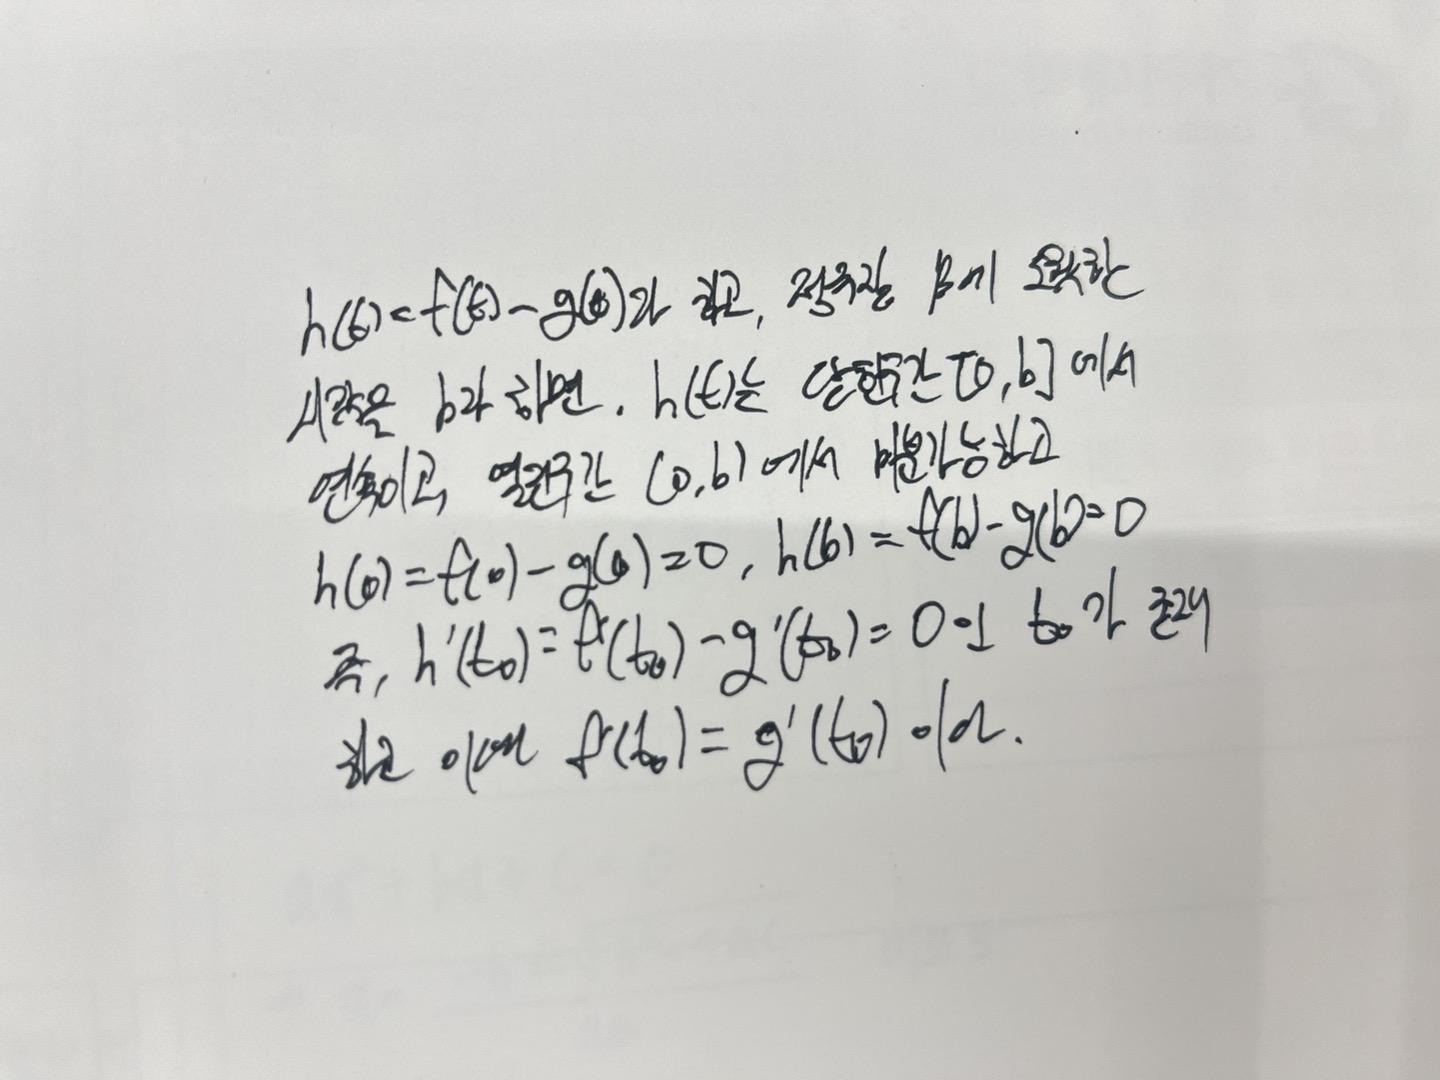 h(t)=f(t)-g(t)라 하고, 정육각 B에 도착한
시각을 b라 하면. h(t)는 닫힌구간 [0,b]에서
연속이고, 열린구간 (0,b)에서 미분가능하고
h(0)=f(0)-g(0)=0, h(b)=f(b)-g(b)=0
즉, h'(t₀)=f'(t₀)-g'(t₀)=0인 t₀가 존재
하고 이때 f'(t₀)=g'(t₀)이다.